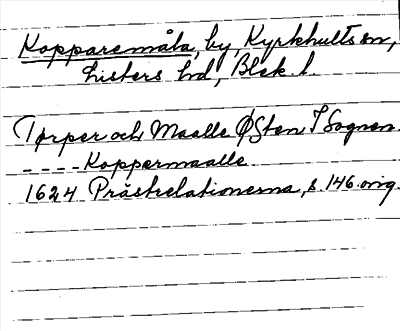 Kopparemåla, by, Kyrkhults sn,
Listers hd, Blek. l.
Tørper och Maalle ØSten I Sognen
---- Koppermaalle
1624 Prästrelationerna, s. 146 orig.